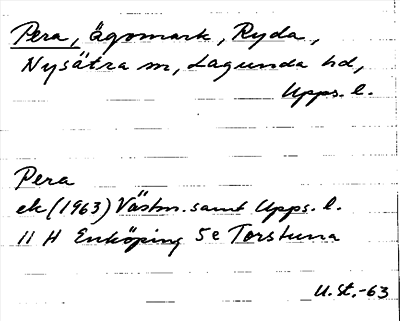 Pera, Ägomark, Ryda,
Nysätra sn, Lagunda hd,
Upps. l.
Pera
ek (1963) Västm. samt Upps. l.
11 H Enköping 5 e Torstuna
U. St. -63